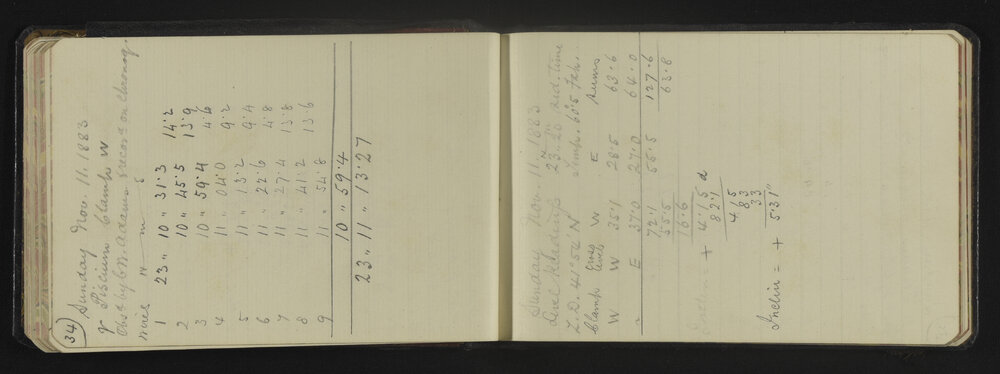 34) Sunday Nov. 11. 1883
γ Piscium Clamp W
Obsd by C. W. Adams & record on Chronog.
Wires H m s
1 23 " 10 " 31.3 14.2
2 10 " 45.5 13.9
3 10 " 59.4 4.6
4 11 " 04.0 9.2
5 11 " 13.2 9.4
6 11 " 22.6 4.8
7 11 " 27.4 13.8
8 11 " 41.2 13.6
9 11 " 54.8
10 " 59.4
23 " 11 " 13.27
Sunday Nov. 11. 1883
Level Readings 23 H 20 m sid. time
Z.D. 41° 54' N Temp. 60.5 Fah.
Clamp Cross levels W E Sums
W W 35.1 28.5 63.6
" E 37.0 27.0 64.0
72.1 55.5 127.6
55.5 63.8
16.6
Inclin = + 4.15 d
82.1
4.15
83
33
Inclin = + 5.31"